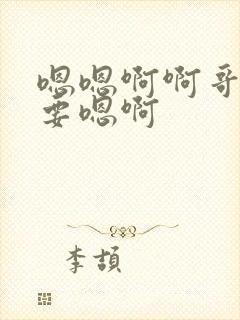 嗯嗯啊啊哥
要嗯啊
李頡